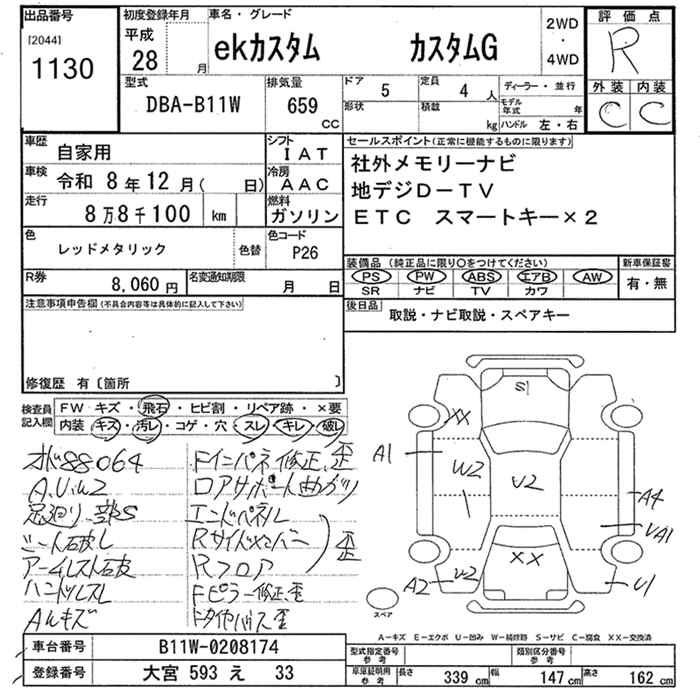 出品番号 初度登録年月 車名・グレード 評価点
[2044] 平成 28 月 ekカスタム カスタムG 2WD・4WD R
1130
型式 排気量 ドア 5 定員 4 人 ディーラー・並行 外装 内装
DBA-B11W 659 CC 形状 積載 kg モデル年式 年 C C
ハンドル 左・右
車歴 自家用 シフト IAT セールスポイント(正常に機能するものに限ります)
車検 令和 8年 12月( 日) 冷房 AAC 社外メモリーナビ
走行 8万8千100 km 燃料 ガソリン 地デジD-TV
ETC スマートキー×2
色 レッドメタリック 色替 色コード P26
装備品(純正品に限り○をつけてください) 新車保証書
R券 8,060円 名変通知期限 月 日 PS PW ABS エアB AW 有・無
SR ナビ TV カワ
注意事項申告欄(不具合内容等は具体的に記入して下さい) 後日品 取説・ナビ取説・スペアキー
修復歴 有〔箇所 〕
検査員記入欄 FW キズ・飛石・ヒビ割・リペア跡・×要
内装 キズ・汚レ・コゲ・穴・スレ・キレ・破レ
88064 Fインパネ修正、歪
A.U.W2 ロアサポート曲がり
足廻り一部S エンドパネル
シート破レ Rサイドメンバー
アームレスト破 Rフロア 歪
ハンドルスレ Fピラー修正、歪
AWキズ
S1
XX
A1 W2 U2 A4
UA1
XX
A2 U2 U1
スペア
A-キズ E-エクボ U-凹み W-補修跡 S-サビ C-腐食 XX-交換済
車台番号 B11W-0208174 型式指定番号 参考 類別区分番号 参考
登録番号 大宮 593 え 33 車庫証明用 参考 長さ 339 cm 幅 147 cm 高さ 162 cm